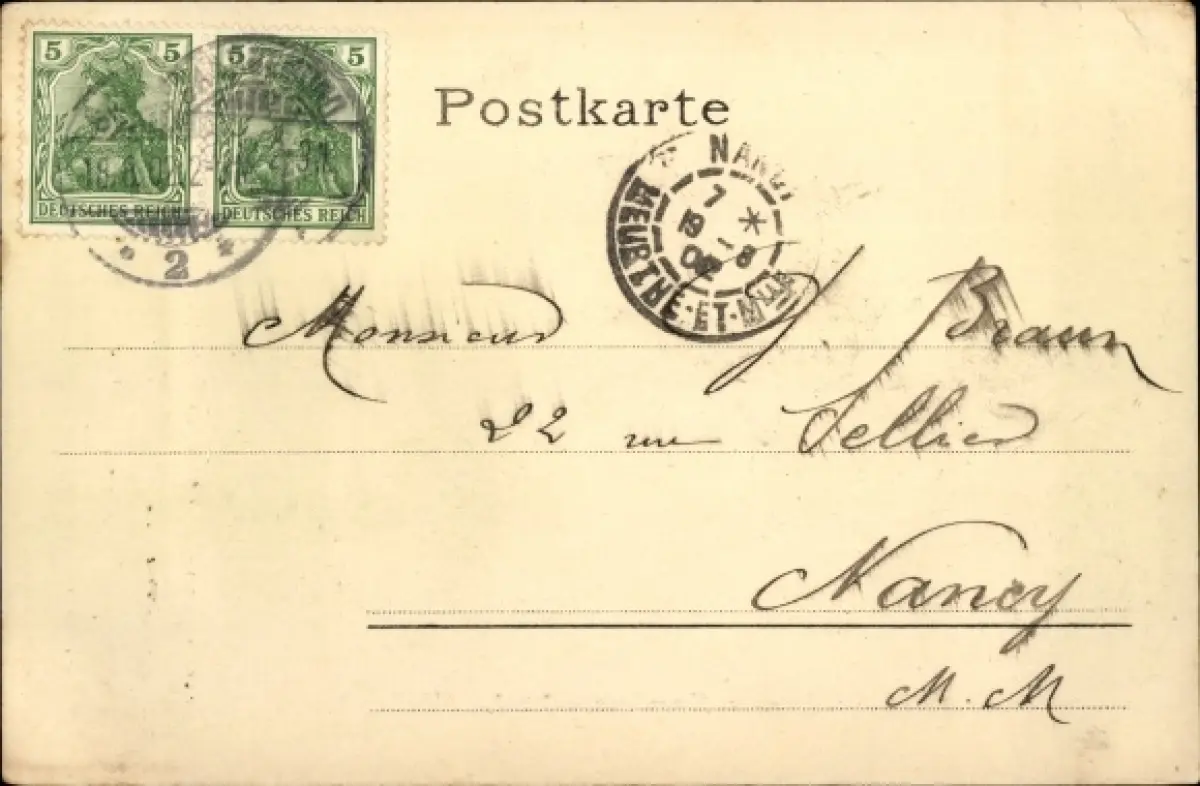 5 5 5 5
DEUTSCHES REICH DEUTSCHES REICH
2
Postkarte
NANCY
7
19 - 8
02
MEURTHE·ET·Mlle
Monsieur J. Braun
22 rue Sellier
Nancy
M. M